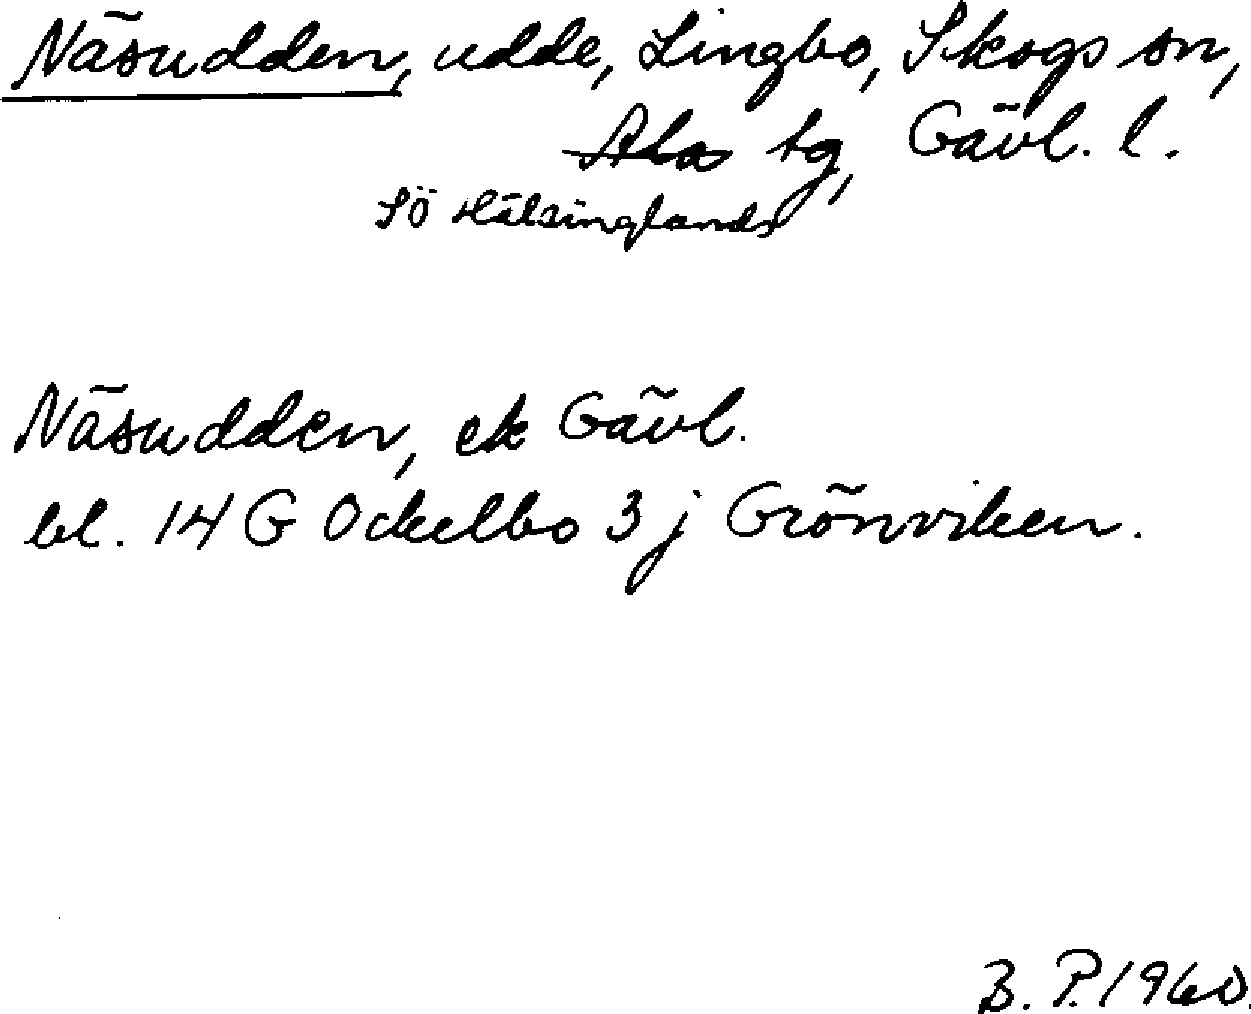 Näsudden, udde, Lingbo, Skogs sn,
Ala tg, Gävl. l.
Sö Hälsinglands
Näsudden, ek Gävl.
bl. 14 G Ockelbo 3 j Grönviken.
B. P. 1960.